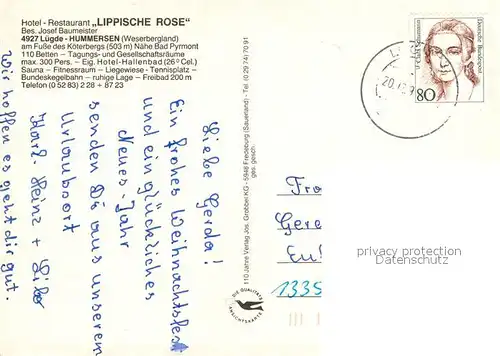 Hotel - Restaurant „LIPPISCHE ROSE"
Bes. Josef Baumeister
4927 Lügde - HUMMERSEN (Weserbergland)
am Fuße des Köterbergs (503 m) Nähe Bad Pyrmont
110 Betten – Tagungs- und Gesellschaftsräume
max. 300 Pers. – Eig. Hotel-Hallenbad (26° Cel.)
Sauna – Fitnessraum – Liegewiese - Tennisplatz –
Bundeskegelbahn – ruhige Lage – Freibad 200 m
Telefon (0 52 83) 2 28 + 87 23
Liebe Gerda!
Ein frohes Weihnachtsfest
und ein glückliches
Neues-Jahr
senden Dir aus unserem
Urlaubsort
Karl-Heinz +
Wir hoffen es geht dir gut.
110 Jahre Verlag Jos. Grobbel KG - 5948 Fredeburg (Sauerland) - Tel (0 29 74) 70 91
ges. gesch.
DIE QUALITÄTS
ANSICHTSKARTE
Deutsche Bundespost
80
20.
Fra
Gere
1335
privacy protection